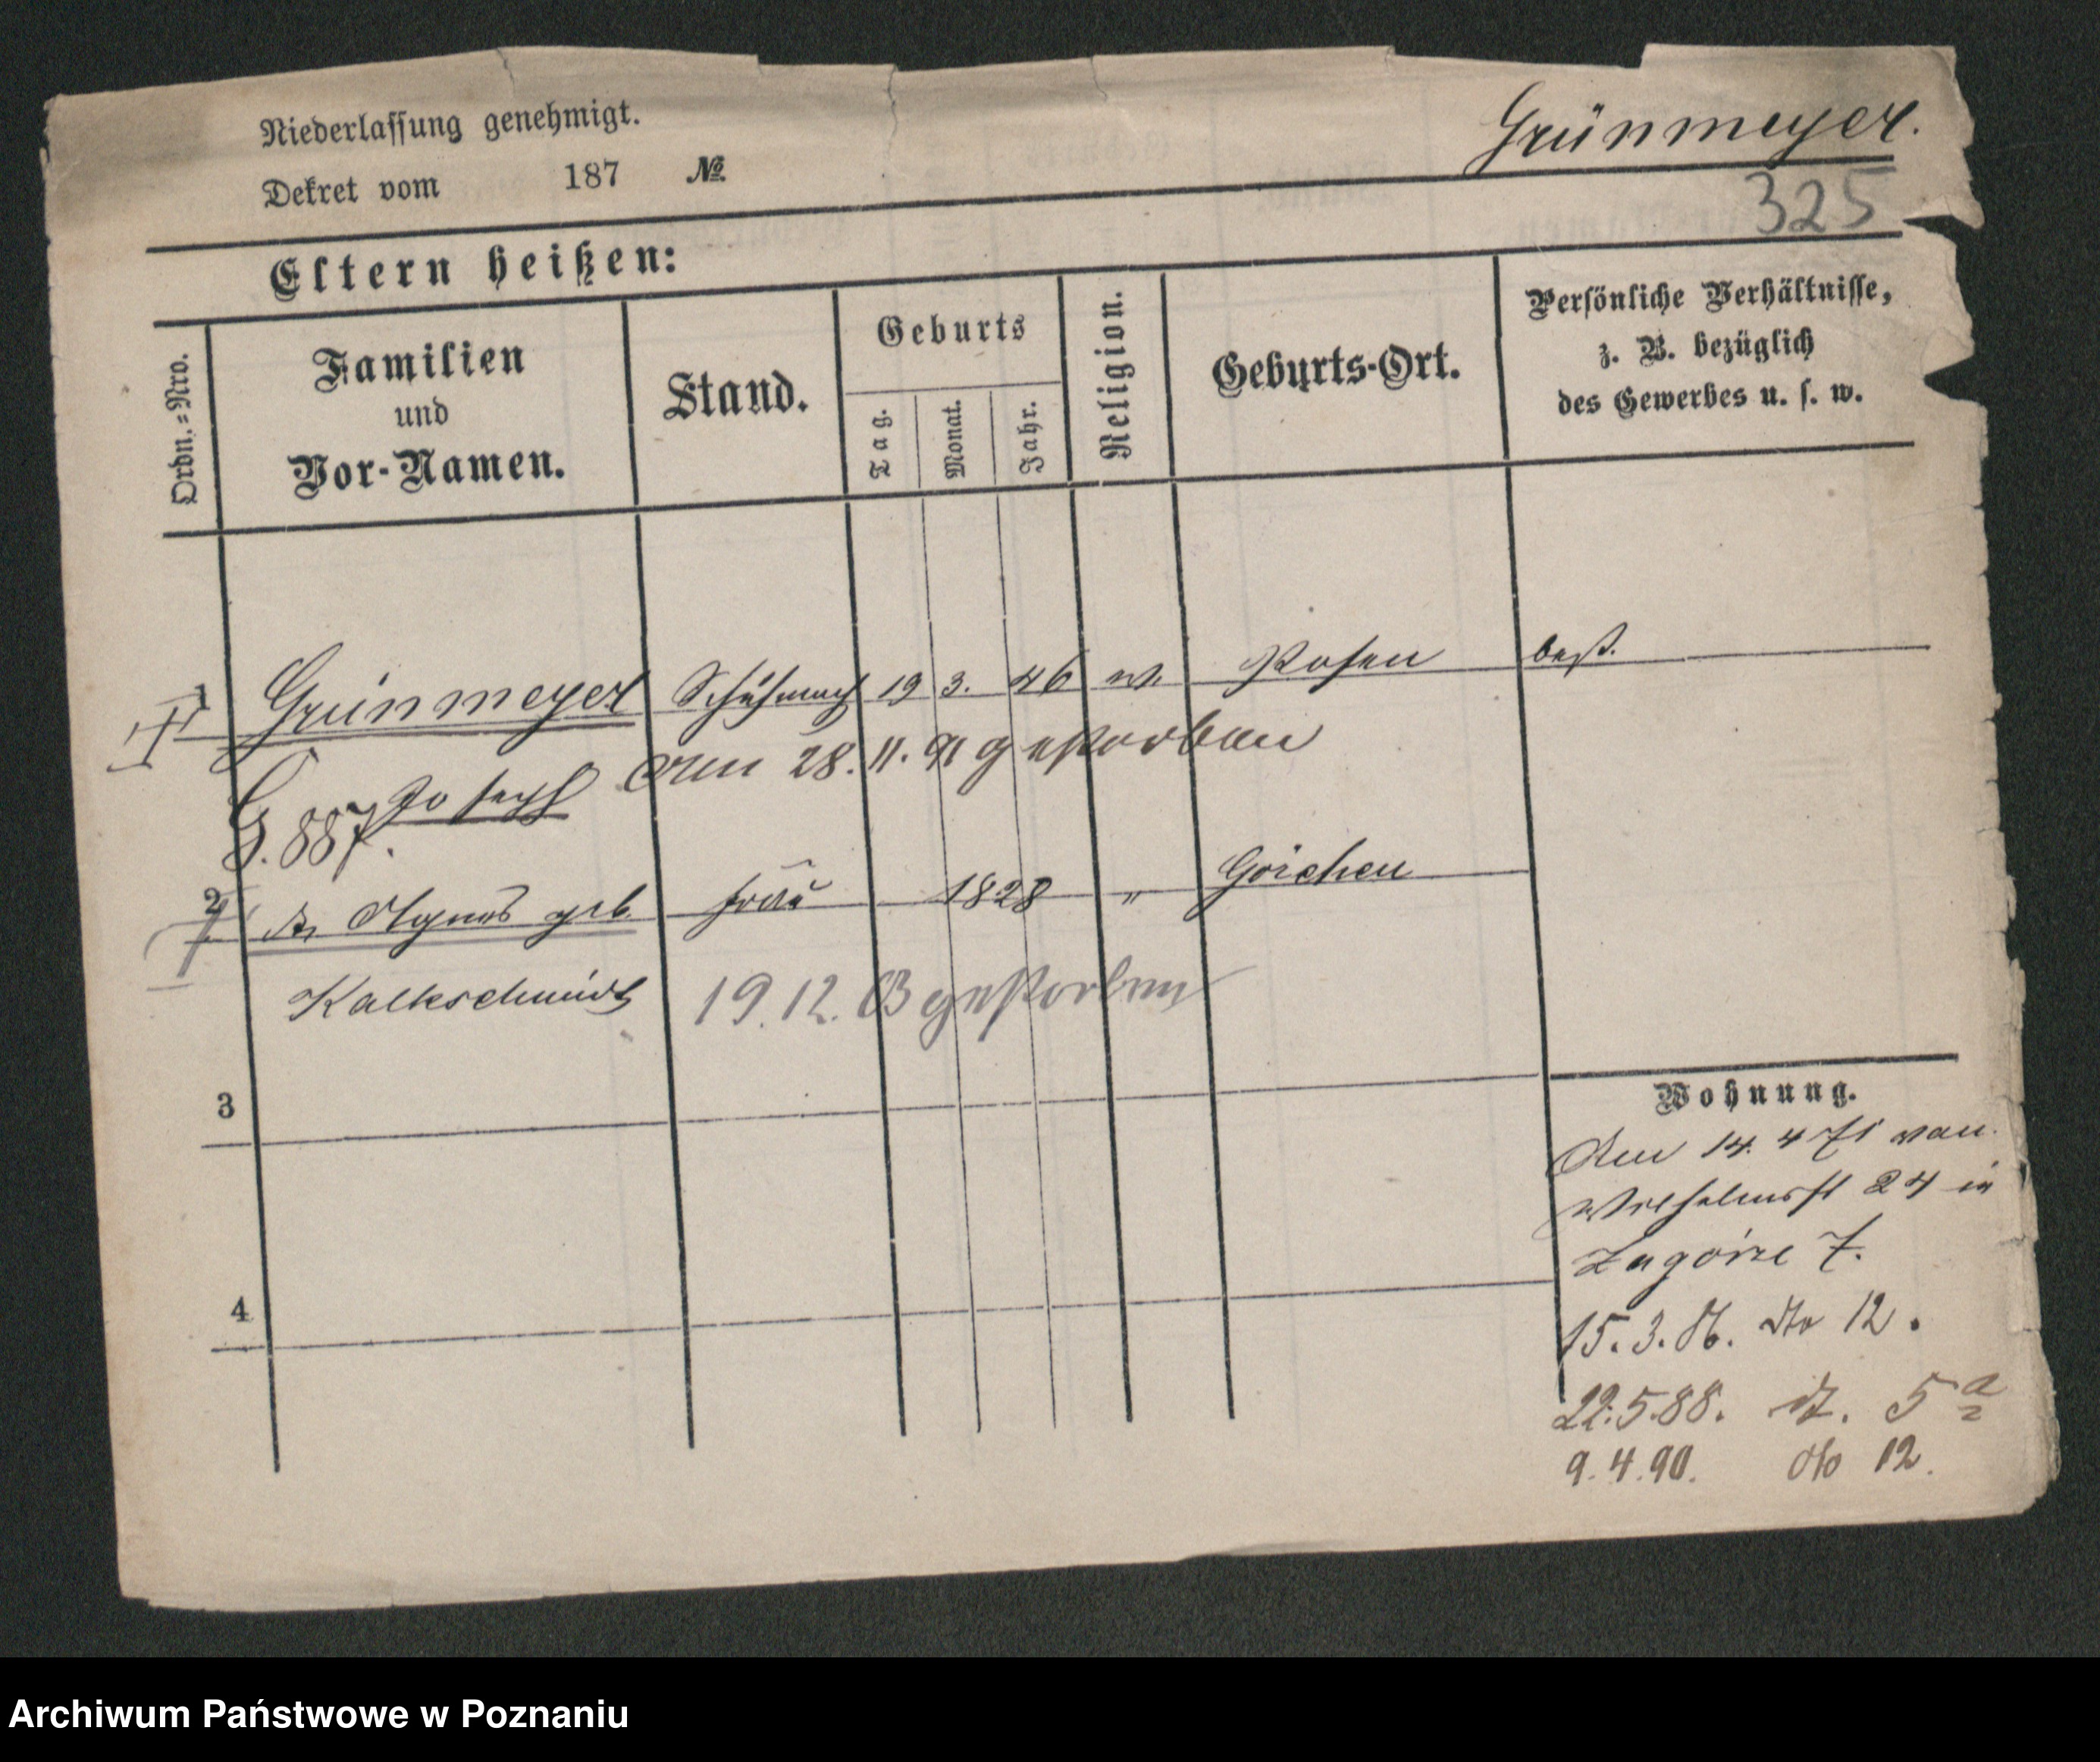 Niederlassung genehmigt.
Grünmeyer.
Dekret vom 187 №.
325
Eltern heißen:
Ordn.=Nro.
Familien
und
Vor-Namen.
Stand.
Geburts
Tag.
Monat.
Jahr.
Religion.
Geburts-Ort.
Persönliche Verhältnisse,
z. B. bezüglich
des Gewerbes u. s. w.
Grünmeyer Schuhmach 19 3. 46 Posen
Joseph den 28. 11. 91 gestorben
G. 887.
2 Agnes geb. Frau 1828 " Goichen
Kalkschmidt 19.12.03 gestorben
3
4
Wohnung.
Den 14. 4 71 von
Wilhelmsst 24 in
Zagórze 7.
15. 3. 86. dto 12.
22.5.88. dt. 5 a
9. 4. 90. dto 12.
Archiwum Państwowe w Poznaniu